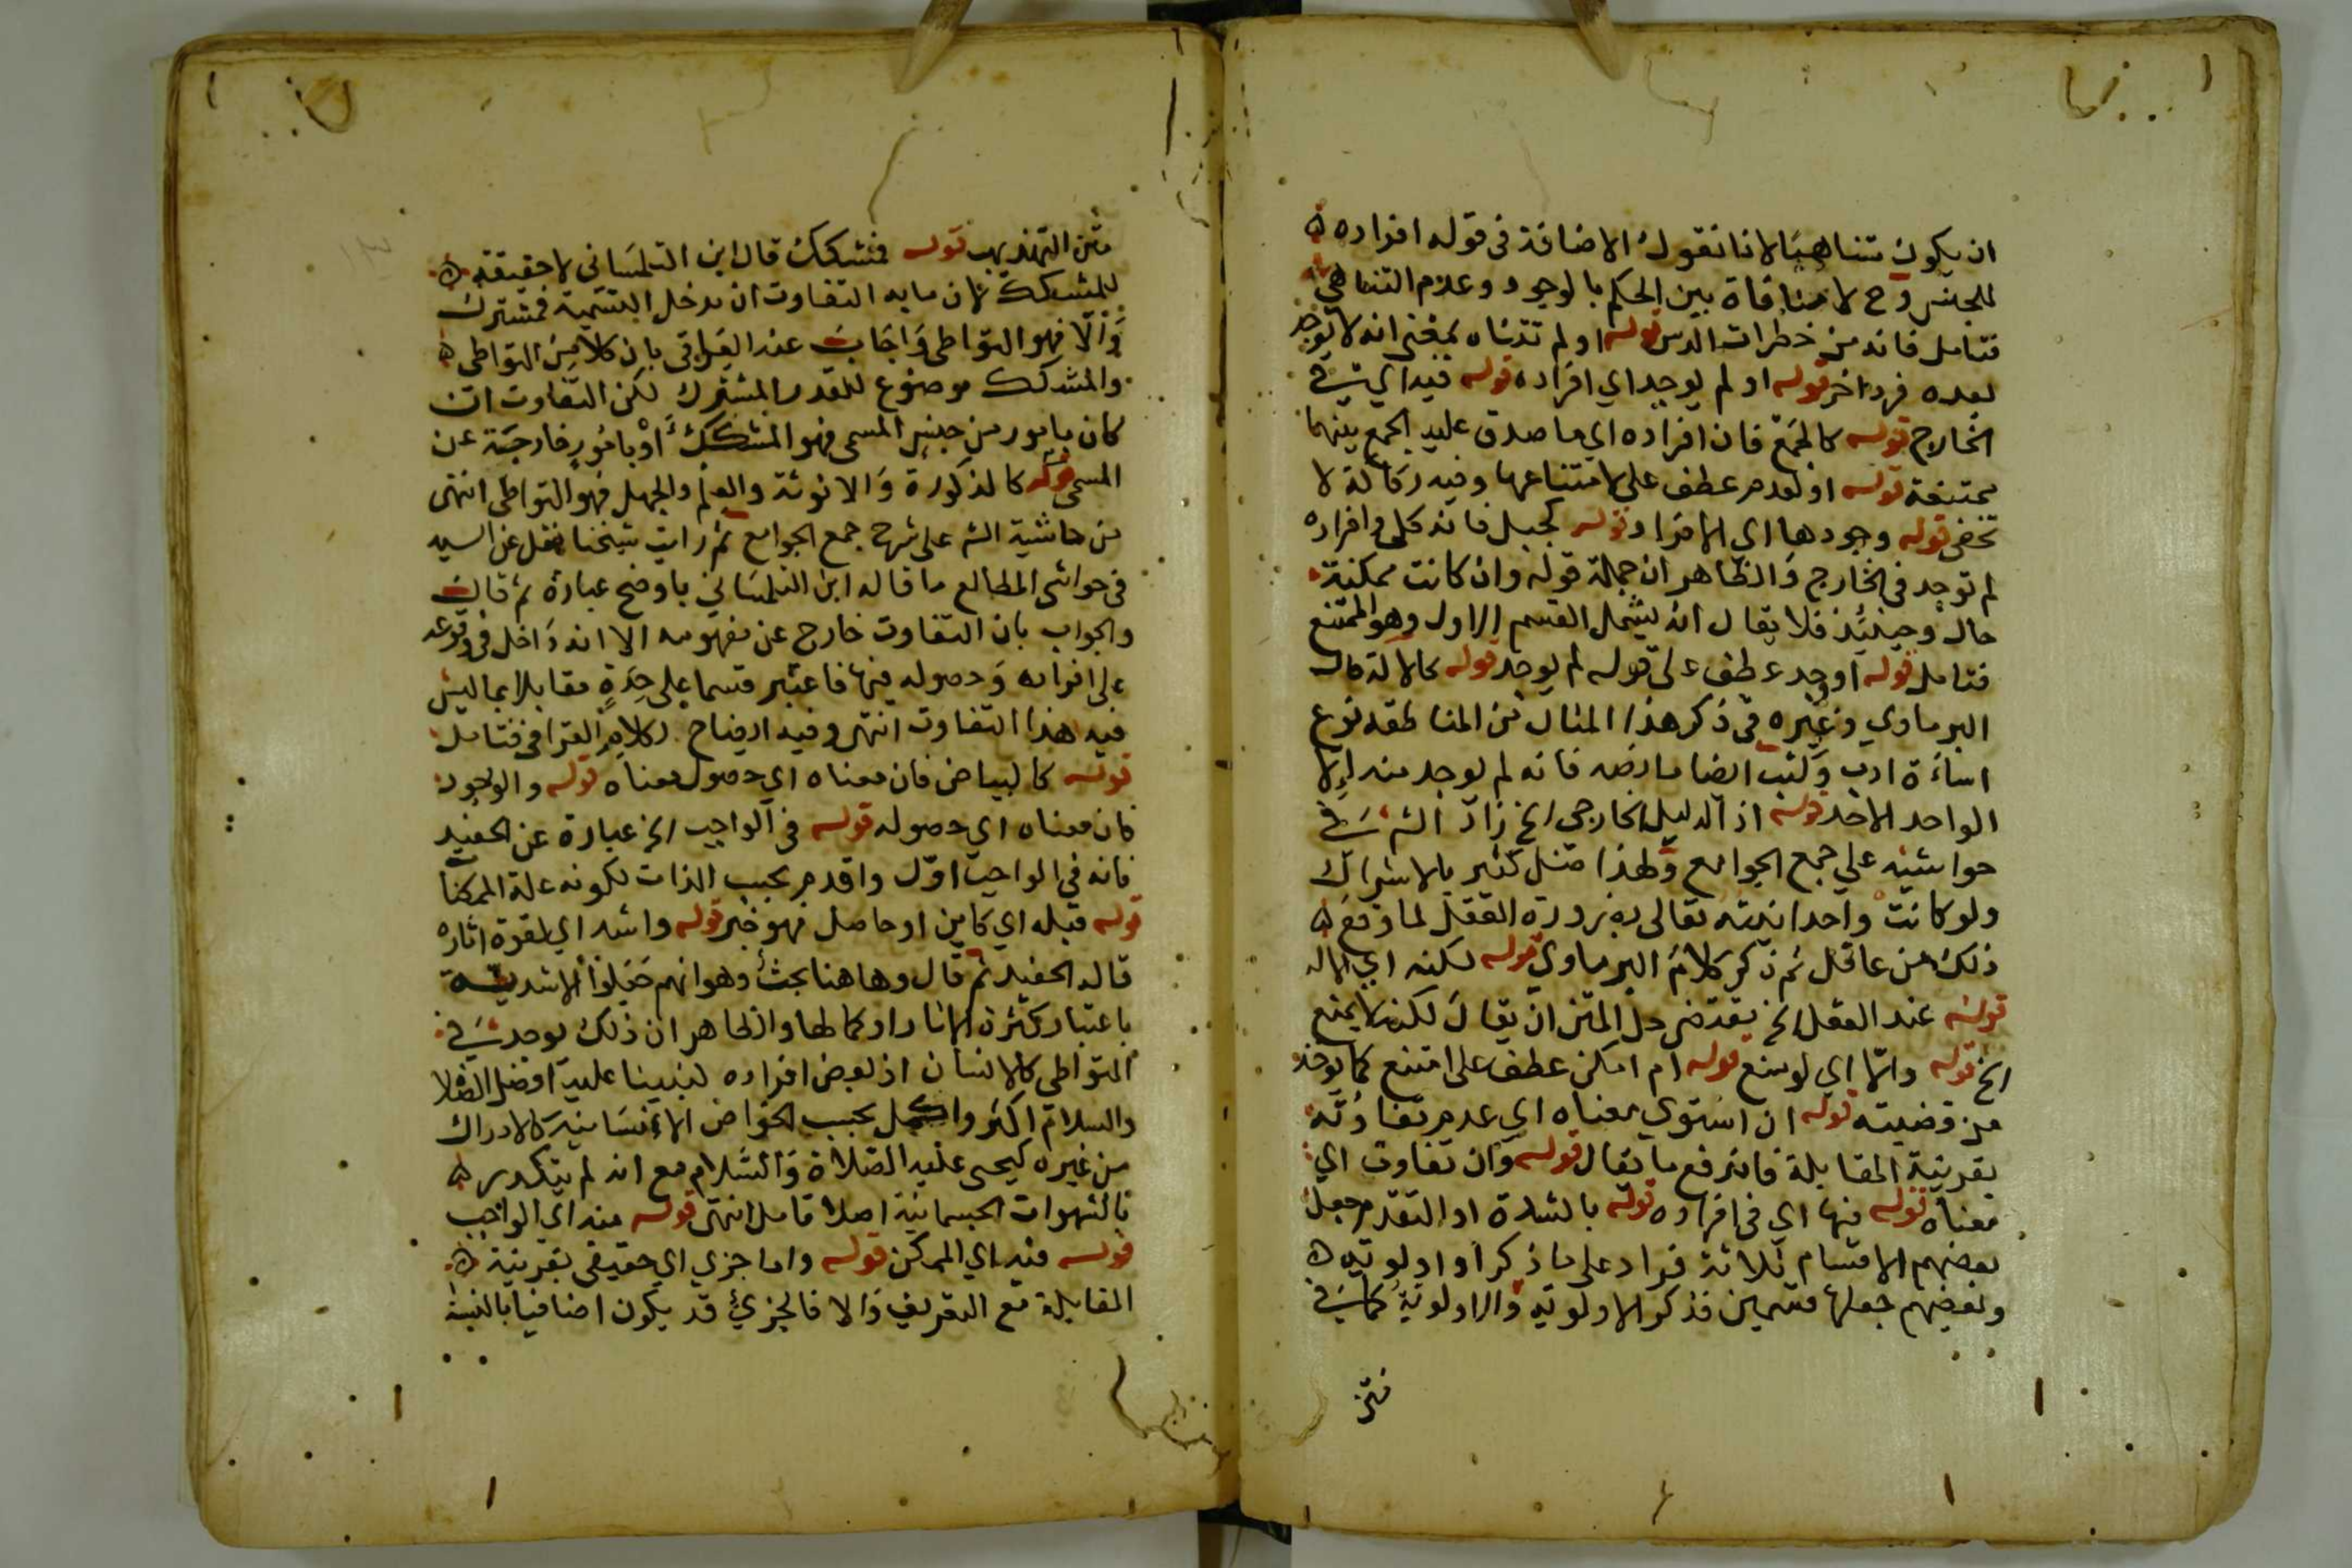 ان يكون متناهيا لانا نقول الاضافة فى قوله افراده
للجنس وح لا منافاة بين الحكم بالوجود وعدم التناهي
فتامل فانه من خطرات الدرس قوله او لم تتناه بمعنى انه لا يوجد
بعده فرد اخر قوله او لم يوجد اي افراده قوله فيه اي في
الخارج قوله كالجمع فان افراده اي ما صدق عليه الجمع بينهما
ممتنعة قوله او لعدم عطف على لامتناعها وفيه ركاكة لا
تخفى قوله وجودها اي الافراد قوله كجبل فانه كلي وافراده
لم توجد فى الخارج والظاهر ان جملة قوله وان كانت ممكنة
حال وحينئذ فلا يقال انه يشمل القسم الاول وهو الممتنع
فتامل قوله او وجد عطف على قوله لم يوجد قوله كالاله قال
البرماوي وغيره فى ذكر هذا المثال من المناطقه نوع
اساءة ادب وكتب ايضا ما نصه فانه لم يوجد منه الا
الواحد الاحد قوله اذ الدليل الخارجى الخ زاد الش في
حواشيه علي جمع الجوامع ولهذا ضل كثير بالاشراك
ولو كانت واحدانيته تعالى بضرورة العقل لما وقع
ذلك من عاقل ثم ذكر كلام البرماوي قوله لكنه اي الاله
قوله عند العقل الخ يقتضى حل المتن ان يقال لكنه لا يمنع
الخ قوله والا اي لو منع قوله ام امكن عطف على امتنع كما يوخذ
من قضيته قوله ان استوي معناه اي عدم تفاوته
بقرينة المقابلة فاندفع ما يقال قوله وان تفاوت اي
معناه قوله فيها اي فى افراده قوله بالشدة او التقدم جعل
بعضهم الاقسام ثلاثة فزاد على ما ذكر او اولويه
وبعضهم جعلها قسمين فذكر الاولويه والاولوية كما في
متن
متن التهذيب قوله فمشكك قال ابن التلمسانى لا حقيقة
للمشكك لان ما به التفاوت ان دخل التسمية فمشترك
والا فهو المتواطى واجاب عنه القرافى بان كلا من المتواطى
والمشكك موضوع للقدر المشترك لكن التفاوت ان
كان بامور من جنس المسمى فهو المشكك او بامور خارجة عن
المسمى قوله كالذكورة والانوثة والعلم والجهل فهو المتواطى انتهى
من حاشية الش على شرح جمع الجوامع ثم رايت شيخنا نقل عن السيد
فى حواشى المطالع ما قاله ابن التلمساني باوضح عبارة ثم قال
والجواب بان التفاوت خارج عن مفهومه الا انه داخل فى وقوعه
على افراده وحصوله فيها فاعتبر قسما على حدة مقابلا بما ليس
فيه هذا التفاوت انتهى وفيه ايضاح لكلام القرافى فتامل
قوله كالبياض فان معناه اي حصول معناه قوله والوجود
فان معناه اي حصوله قوله فى الواجب الخ عبارة عن الحفيد
فانه في الواجب اول واقدم بحسب الذات لكونه علة الممكنات
قوله قبله اي كاين او حاصل فهو خبر قوله واشد اي لقوة اثاره
قاله الحفيد ثم قال وها هنا بحث وهو انهم جعلوا الاشدية
باعتبار كثرة الاثار او كمالها والظاهر ان ذلك يوجد في
المتواطي كالانسان اذ بعض افراده لنبينا عليه افضل الصلاة
والسلام اكثر واكمل بحسب الخواص الانسانية كالادراك
من غيره كيحيى عليه الصلاة والسلام مع انه لم يتكدر
بالشهوات الجسمانية اصلا تامل انتهى قوله منه اي الواجب
قوله فيه اي الممكن قوله واما جزي اي حقيقى بقرينة
المقابلة مع التعريف والا فالجزئي قد يكون اضافيا بالنسبة